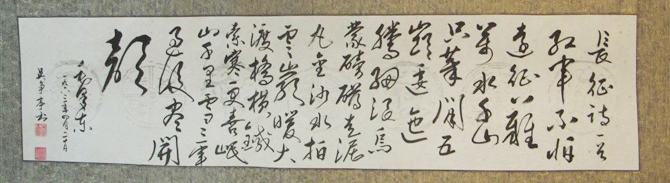 長征詩一首
紅軍不怕
遠征難
萬水千山
只等閒五
嶺逶迤
騰細浪烏
蒙磅礴走泥
丸金沙水拍
雲崖暖大
渡橋橫鐵
索寒更喜岷
山千里雪三軍
過後盡開
顏
毛澤東